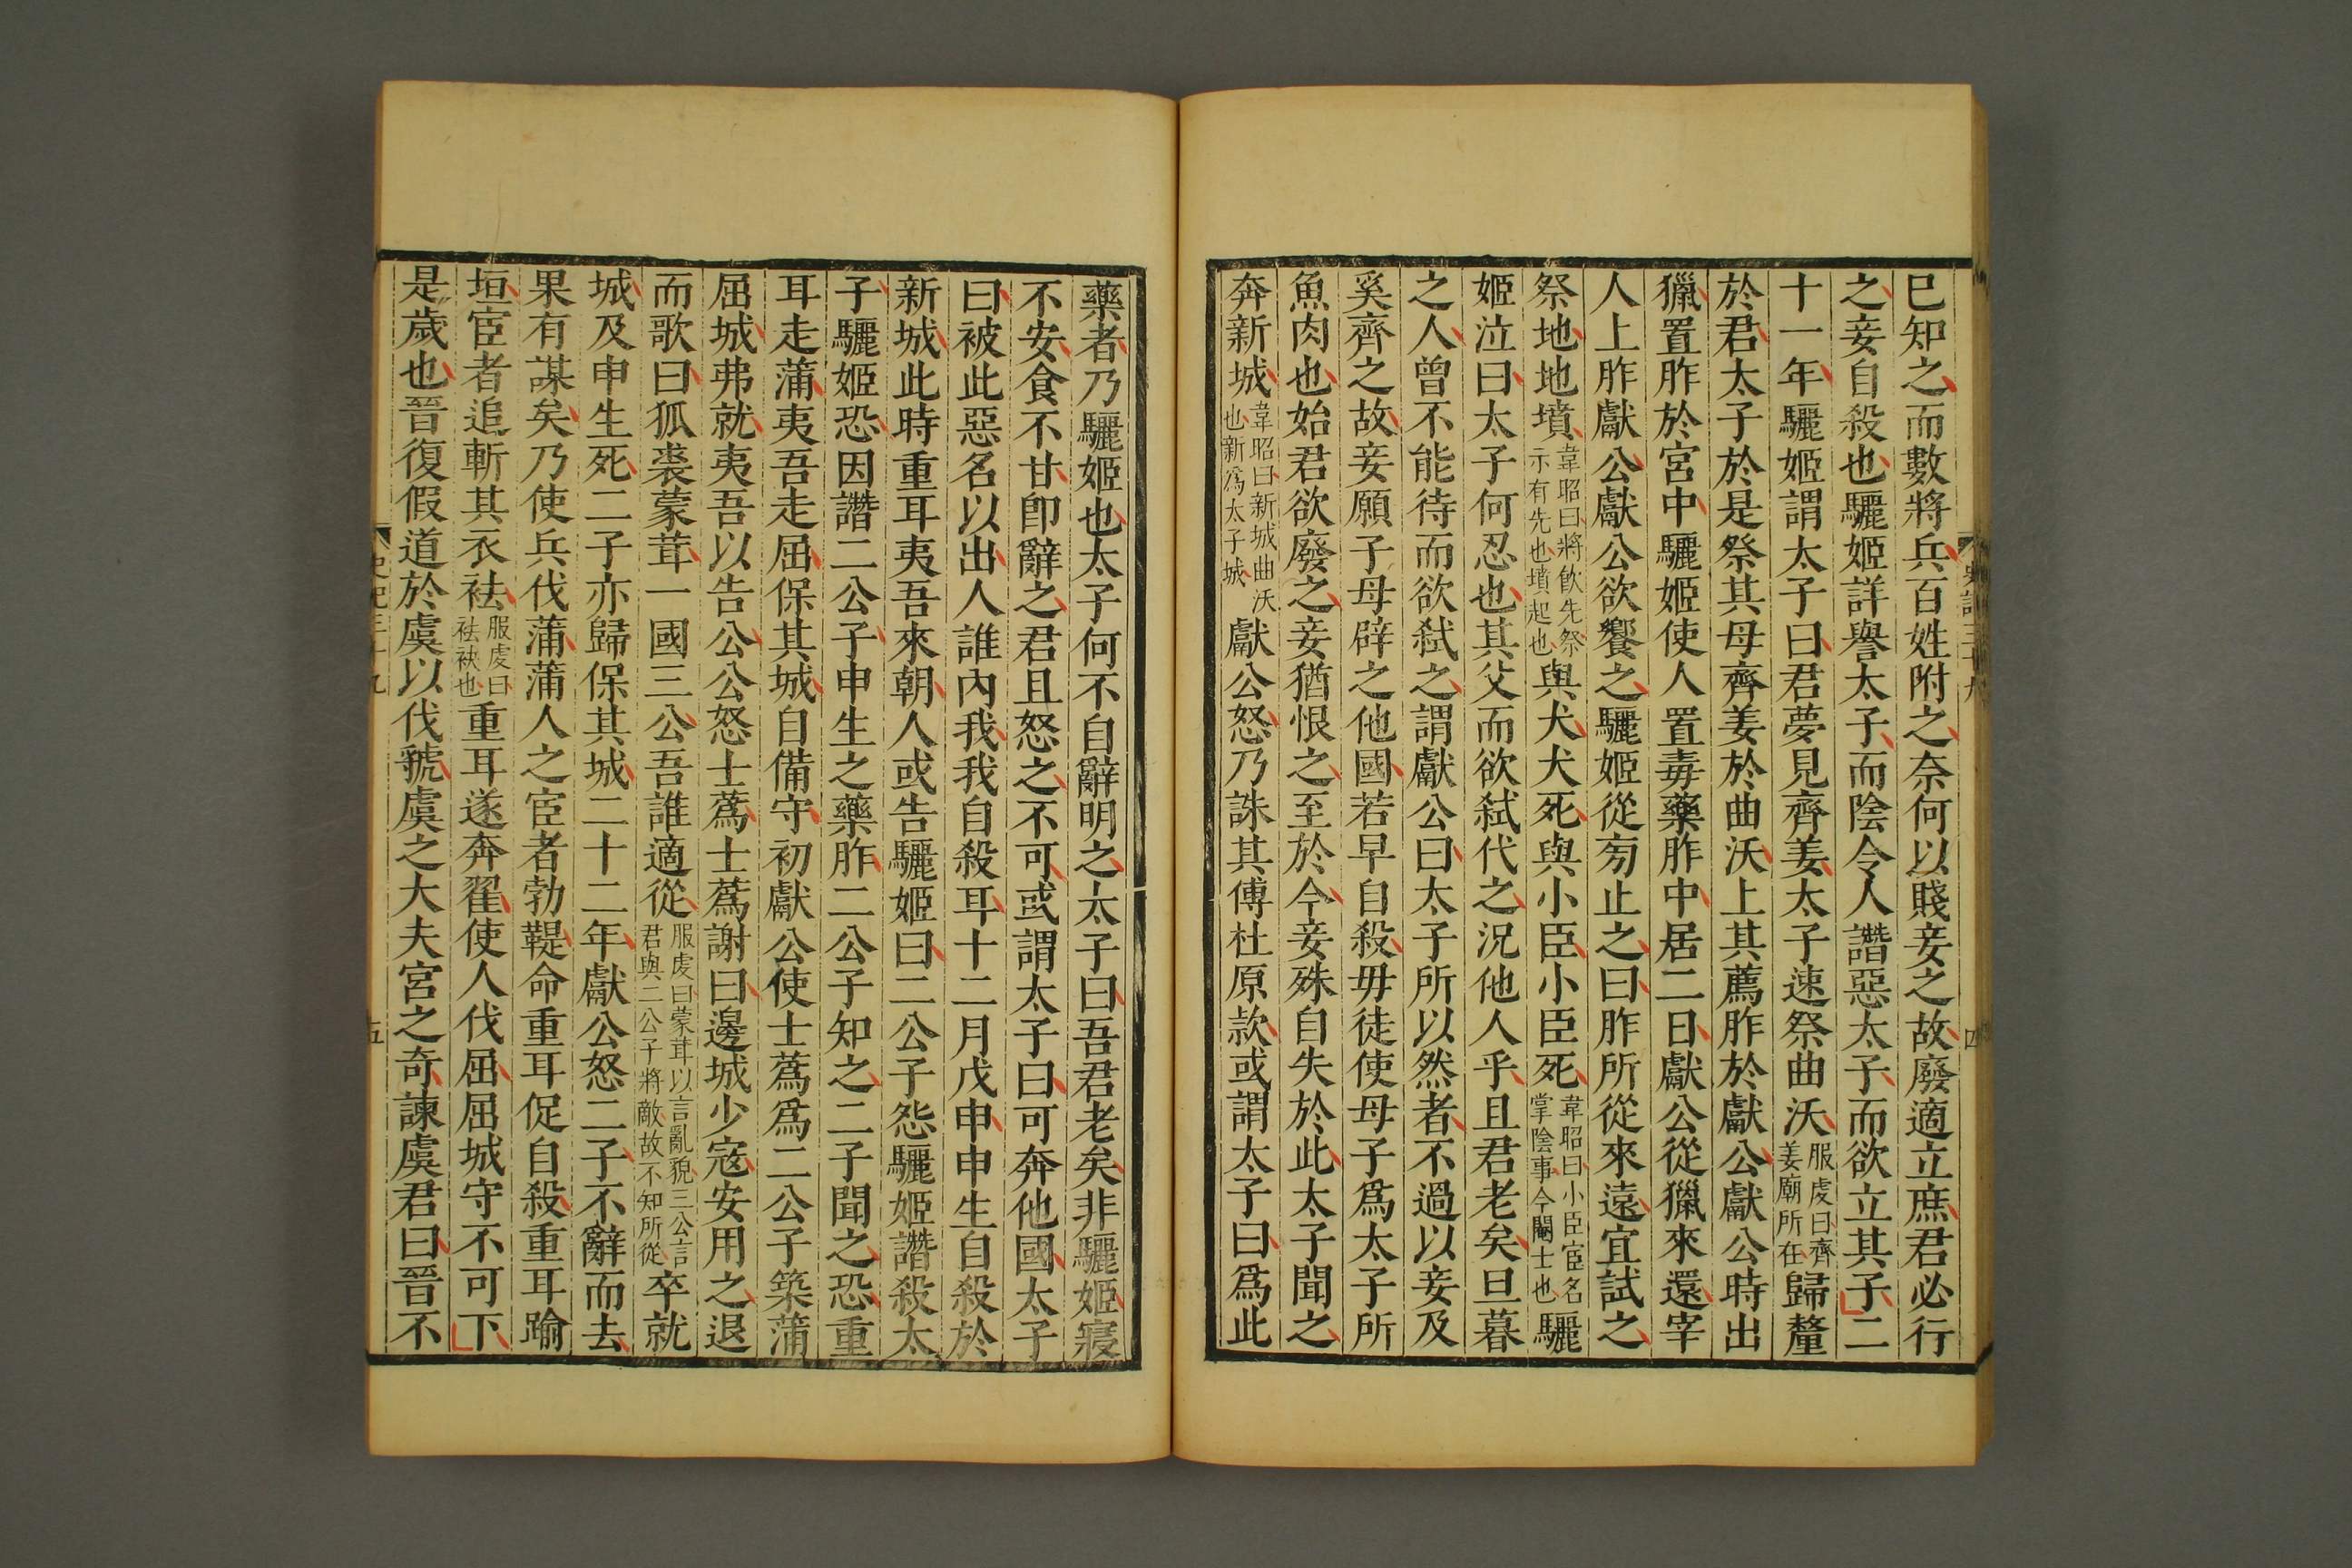 史記三十九
四
已知之而數將兵百姓附之奈何以賤妾之故廢適立庶君必行
之妾自殺也驪姬詳譽太子而陰令人譖惡太子而欲立其子二
十一年驪姬謂太子曰君夢見齊姜太子速祭曲沃服虔曰齊姜廟所在歸釐
於君太子於是祭其母齊姜於曲沃上其薦胙於獻公獻公時出
獵置胙於宮中驪姬使人置毒藥胙中居二日獻公從獵來還宰
人上胙獻公獻公欲饗之驪姬從旁止之曰胙所從來遠宜試之
祭地地墳韋昭曰將飮先祭示有先也墳起也與犬犬死與小臣小臣死韋昭曰小臣宦名掌陰事今閹士也驪
姬泣曰太子何忍也其父而欲弒代之況他人乎且君老矣旦暮
之人曾不能待而欲弒之謂獻公曰太子所以然者不過以妾及
奚齊之故妾願子母辟之他國若早自殺毋徒使母子爲太子所
魚肉也始君欲廢之妾猶恨之至於今妾殊自失於此太子聞之
奔新城韋昭曰新城曲沃也新爲太子城獻公怒乃誅其傅杜原款或謂太子曰爲此
藥者乃驪姬也太子何不自辭明之太子曰吾君老矣非驪姬寢
不安食不甘卽辭之君且怒之不可或謂太子曰可奔他國太子
曰被此惡名以出人誰內我我自殺耳十二月戊申申生自殺於
新城此時重耳夷吾來朝人或告驪姬曰二公子怨驪姬譖殺太
子驪姬恐因譖二公子申生之藥胙二公子知之二子聞之恐重
耳走蒲夷吾走屈保其城自備守初獻公使士蔿爲二公子築蒲
屈城弗就夷吾以告公公怒士蔿士蔿謝曰邊城少寇安用之退
而歌曰狐裘蒙茸一國三公吾誰適從服虔曰蒙茸以言亂貌三公言君與二公子將敵故不知所從卒就
城及申生死二子亦歸保其城二十二年獻公怒二子不辭而去
果有謀矣乃使兵伐蒲蒲人之宦者勃鞮命重耳促自殺重耳踰
垣宦者追斬其衣袪服虔曰袪袂也重耳遂奔翟使人伐屈屈城守不可下
是歲也晉復假道於虞以伐虢虞之大夫宮之奇諫虞君曰晉不
史記三十九
五